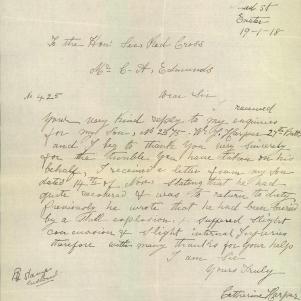 ad St
Exeter
19-1-18
To the Hon Sec Red Cross
Mr C. A. Edmunds
No 425
Dear Sir
I received
Your very kind reply to my enquiries
for my Son, No 2375 W. J. Harper 27th Batt
and I beg to thank You very sincerely
for the trouble You have taken on his
behalf. I received a letter from my Son
dated 14th of Nov. stating that he had
quite recovered & was to return to duty
Previously he wrote that he had been buried
by a Shell explosion, & suffered Slight
concussion & Slight internal Injuries
therefore with many thanks for Your help
I am Sir
Yours Truly
Catherine Harper
stamp